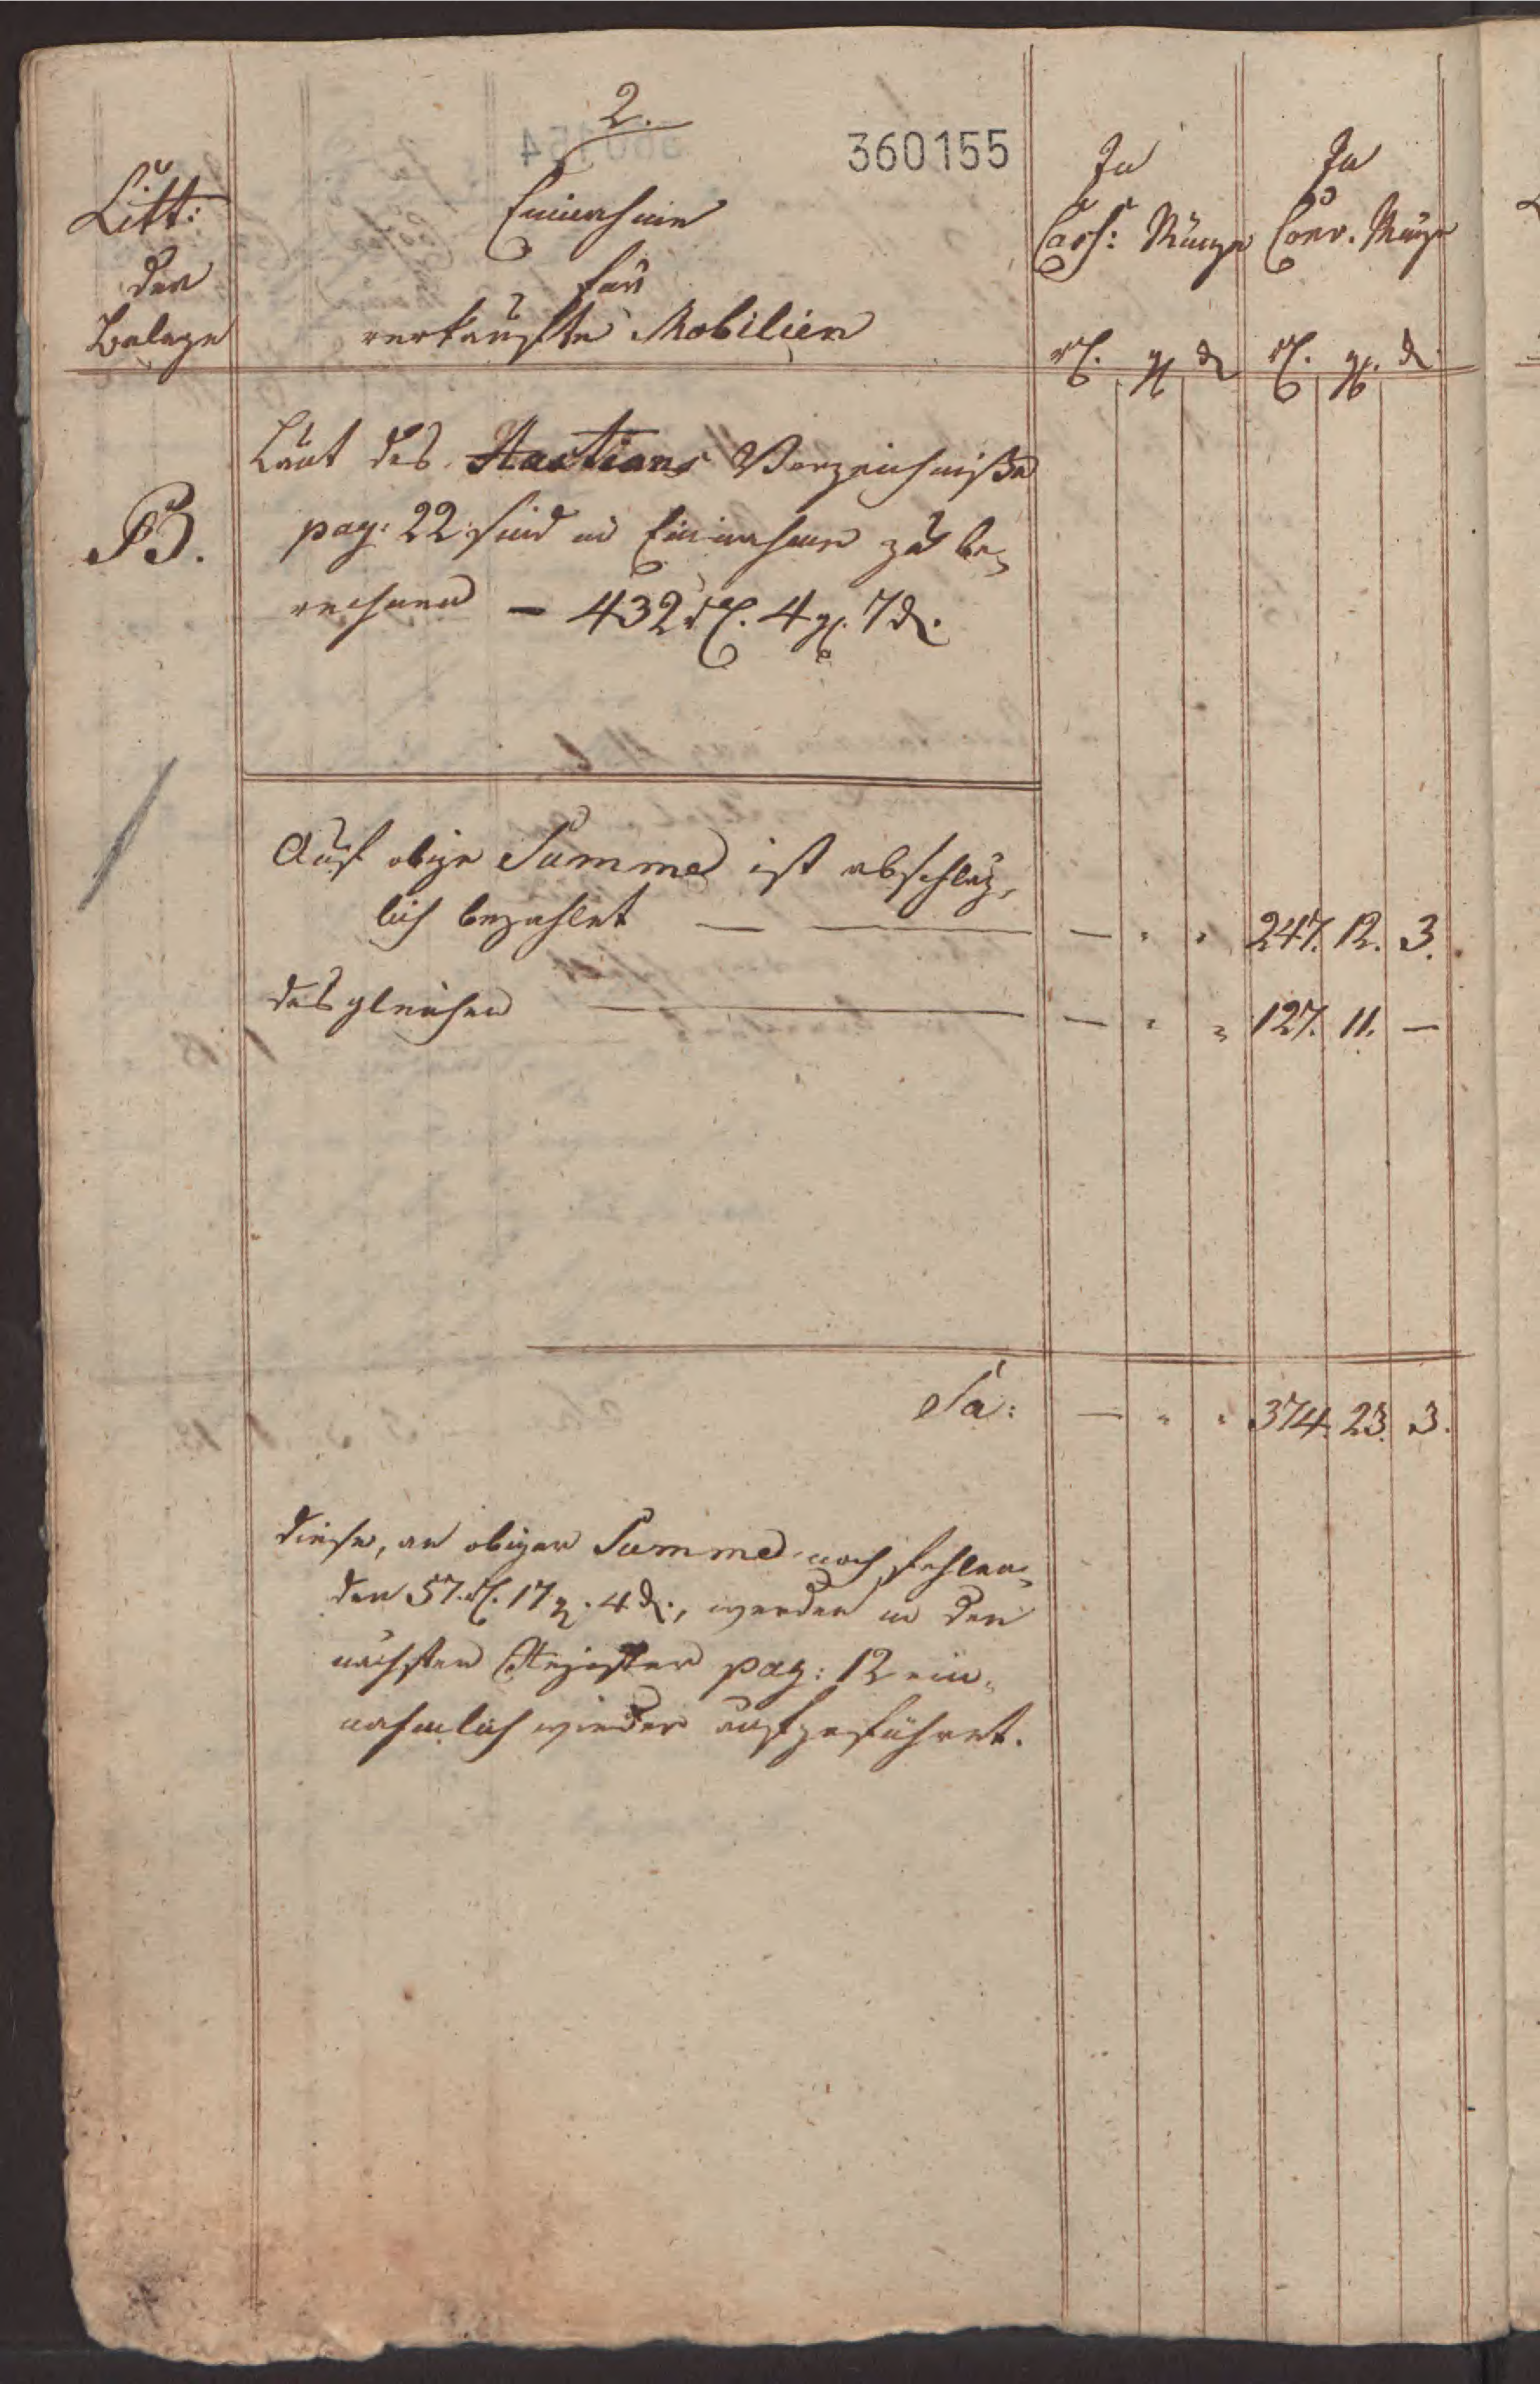 2.
360155
Litt:
der
Belege
Einnahme
für
verkaufte Mobilien
In
Cass: Münze
rℓ. gℊ ₰
In
Conv. Münze
rℓ. gℊ. ₰
B.
Laut des Auctions Verzeichnißes
pag: 22 sind in Einnahme zu be-
rechnen — 432 rℓ. 4 gℊ. 7 ₰.
Auf obige Summe ist abschläg-
lich bezahlet — — — " " 247. 12. 3.
desgleichen — — " " 127. 11. —
Sa: — " " 374. 23. 3.
Diese, an obiger Summe noch fehlen-
den 57. rℓ. 17 gℊ. 4 ₰., werden in den
nächsten Register pag: 12 ein-
nahmlich wieder aufgeführet.